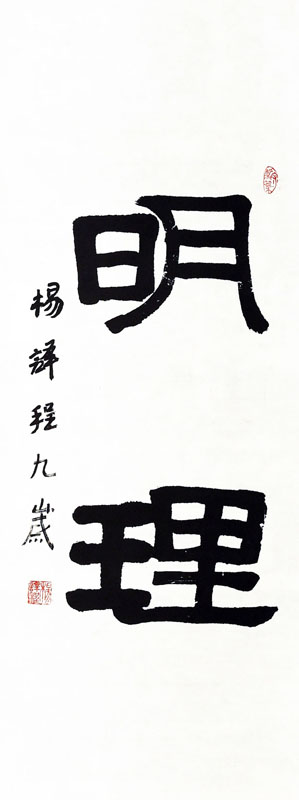 明理
楊譯程九歲